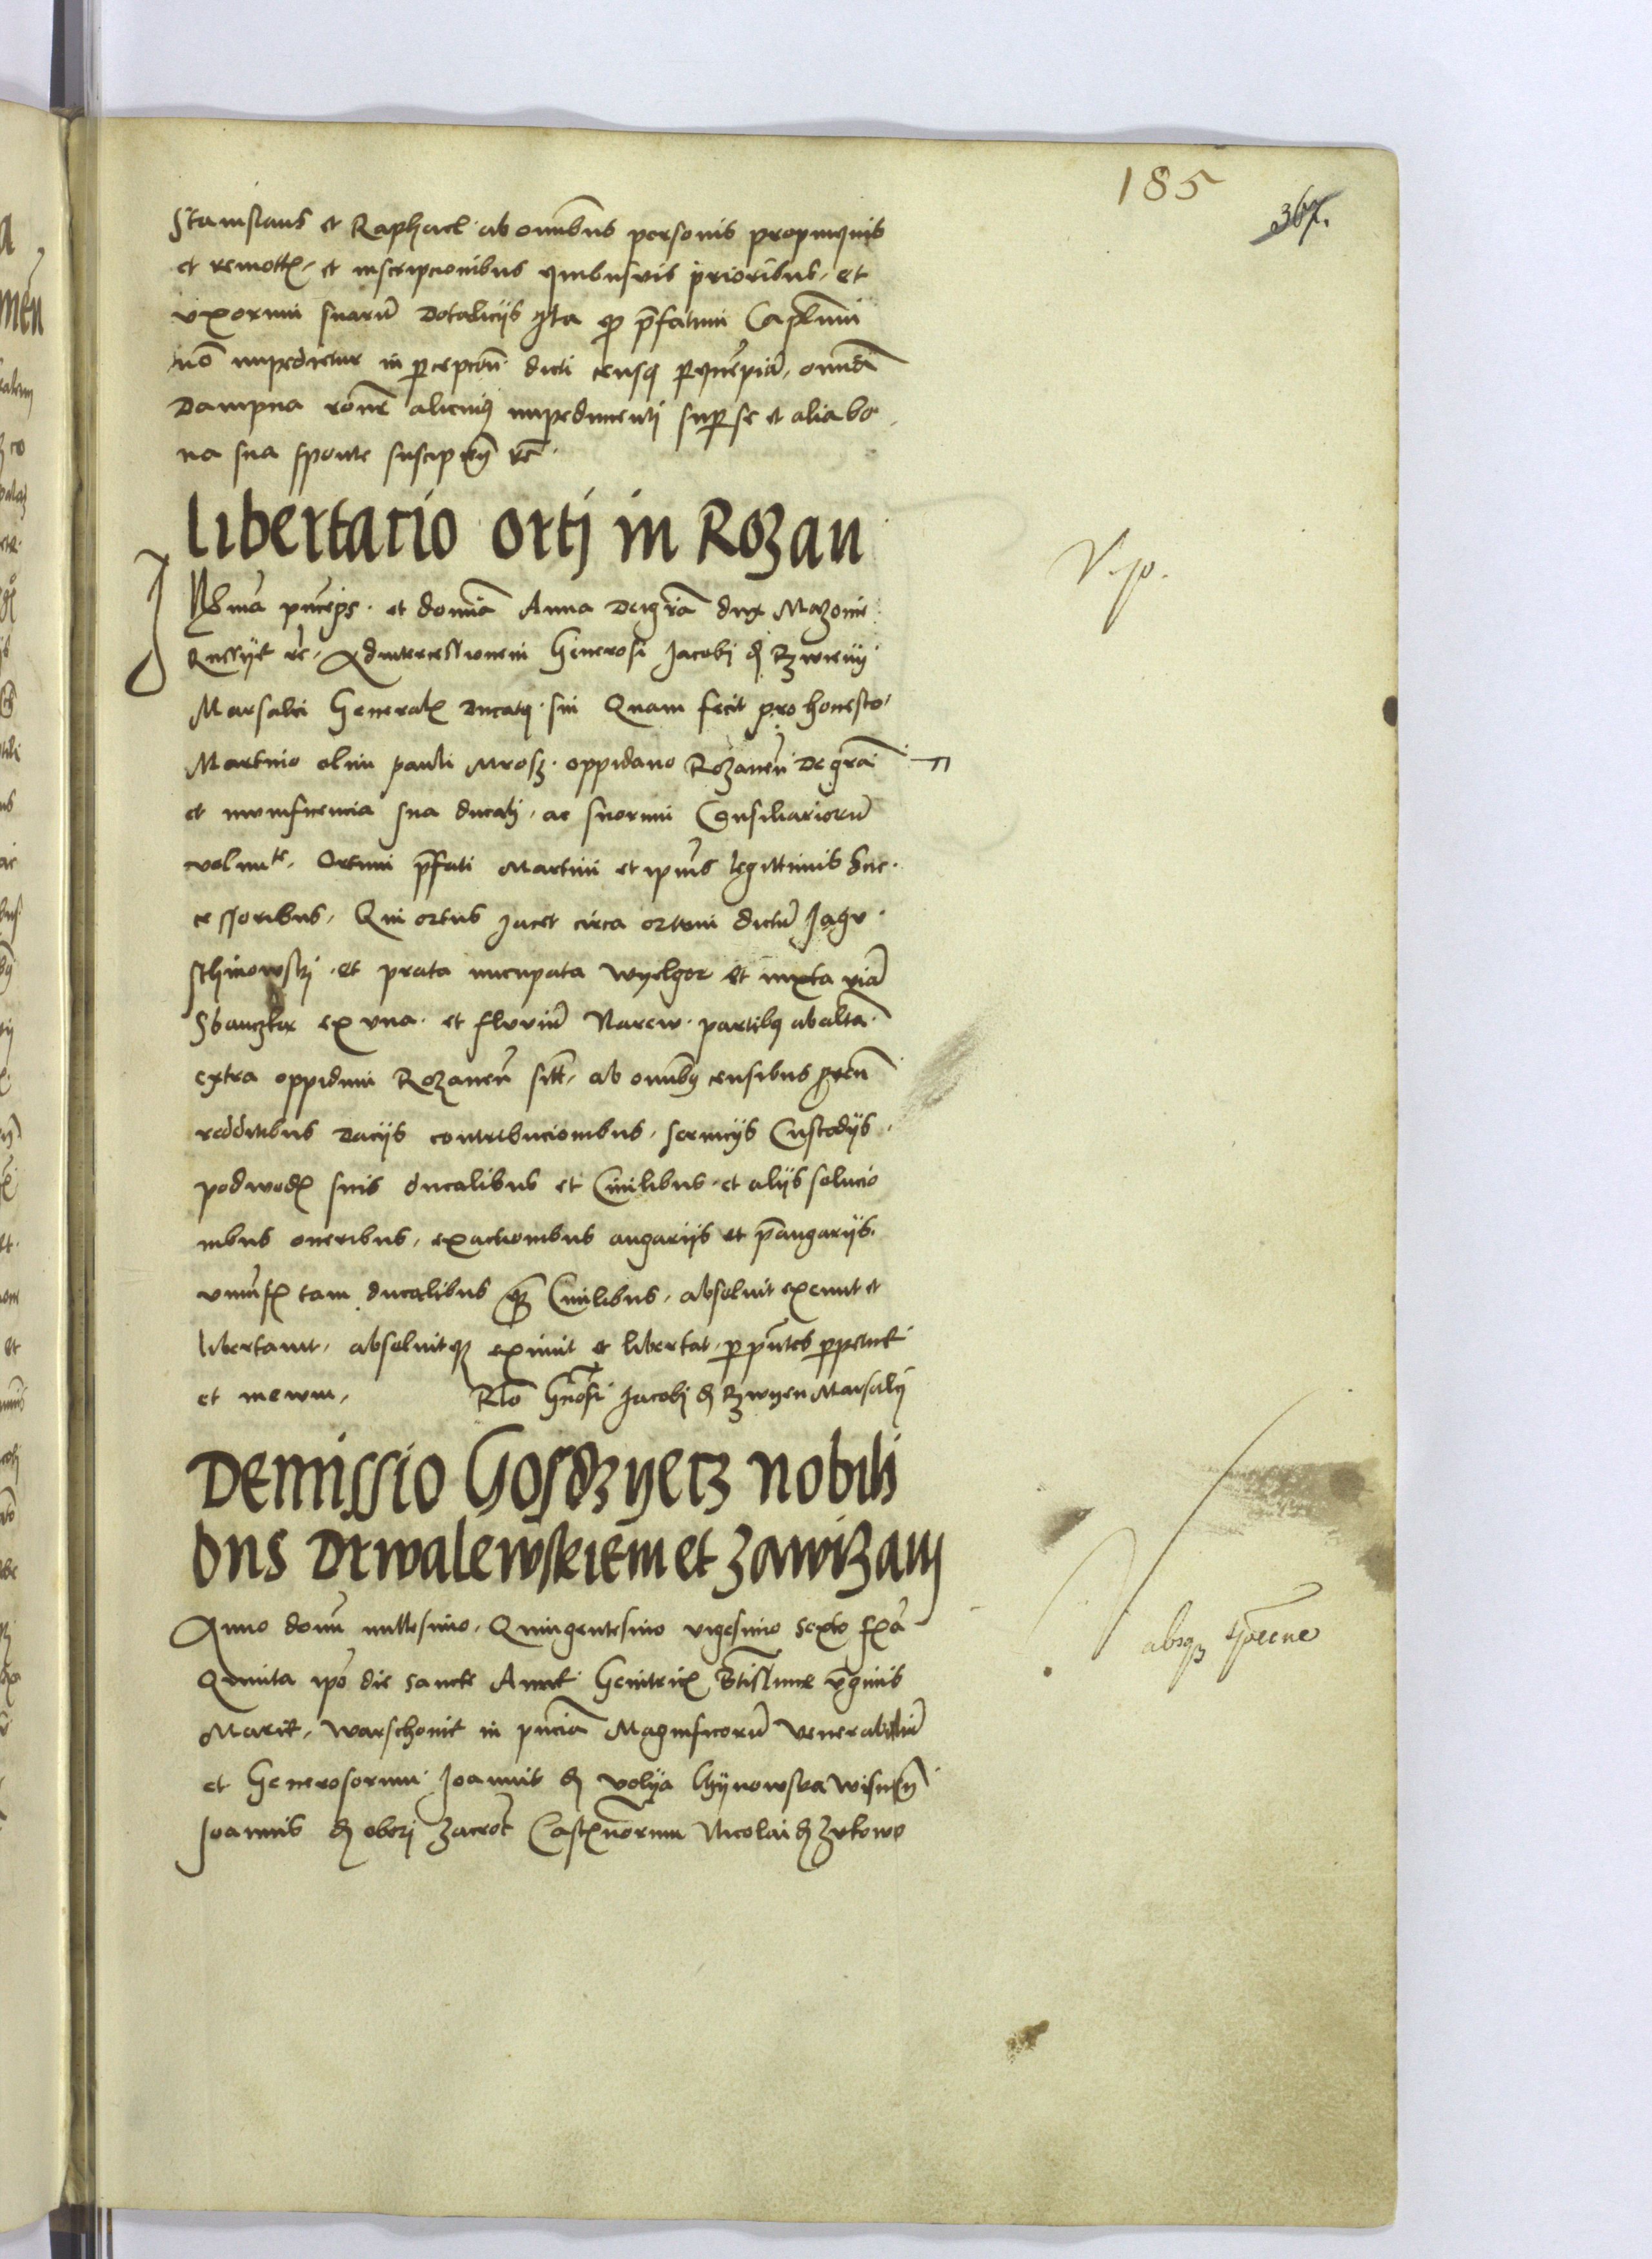 185
367.
Stanislaus et Raphael ab omnibus personis propinquis
et remotis, et inscripcionibus quibusvis prioribus, et
uxorum suarum dotaliciis ita prefatum
non impediretur in dicti census omnia
Dampna alicuius impedimenti super se et alia bo
na sua sponte
libertacio orti in Rozan
V. p.
princeps et domina Anna dei gra dux Mazovie
Russyeque rc. Ad intercessionem Generosi Jacobi de Rzwieny
Marsalci Generalis ducatus sui Quam fecit pro honesto
Martino olim pauli Mrosz oppidano Rozanen De gra
et munificencia sua ducali, ac suorum Consiliariorum
volunte, Ortum prefati Martini et ipsius legittimis Suc
cessoribus, Qui ortus jacet circa ortum dictum Jagv
sthinowski et prata nuncupata Wyelgor et iuxta viam
ex una et fluvium Narew partibus ab alta
extra oppidum Rozanen sitt, ab omnibus censibus
redditibus daciis contribucionibus, serviciis Custodiis
podwodis suis ducalibus et Civilibus et aliis solucio
nibus oneribus, exactionibus angariis et preangariis
tam ducalibus quam Civilibus, absolvit exemit et
libertavit, absolvitque eximit et libertat, per presentes perpetue
et in ewm, Rlo Gnosi Jacobi de Rzwyen Marsalci
Demissio Gosdzyecz nobili
bus Drwalewskiem et Zawizam
absque
Anno domini millesimo, Quingentesimo vigesimo sexto feria
Quinta ipso die sancte Anne Genitricis Btissime virginis
Marie, Warschovie in pncia Magnificorum Venerabilium
et Generosorum Joannis de volya
Joannis de obori Zacroc Castellanorum Nicolai de Zukowo